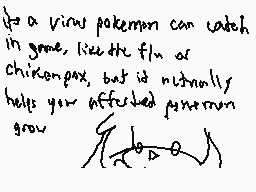 its a virus pokemon can catch
in game, like the flu or
chickenpox, but it actually
helps your affected pokemon
grow